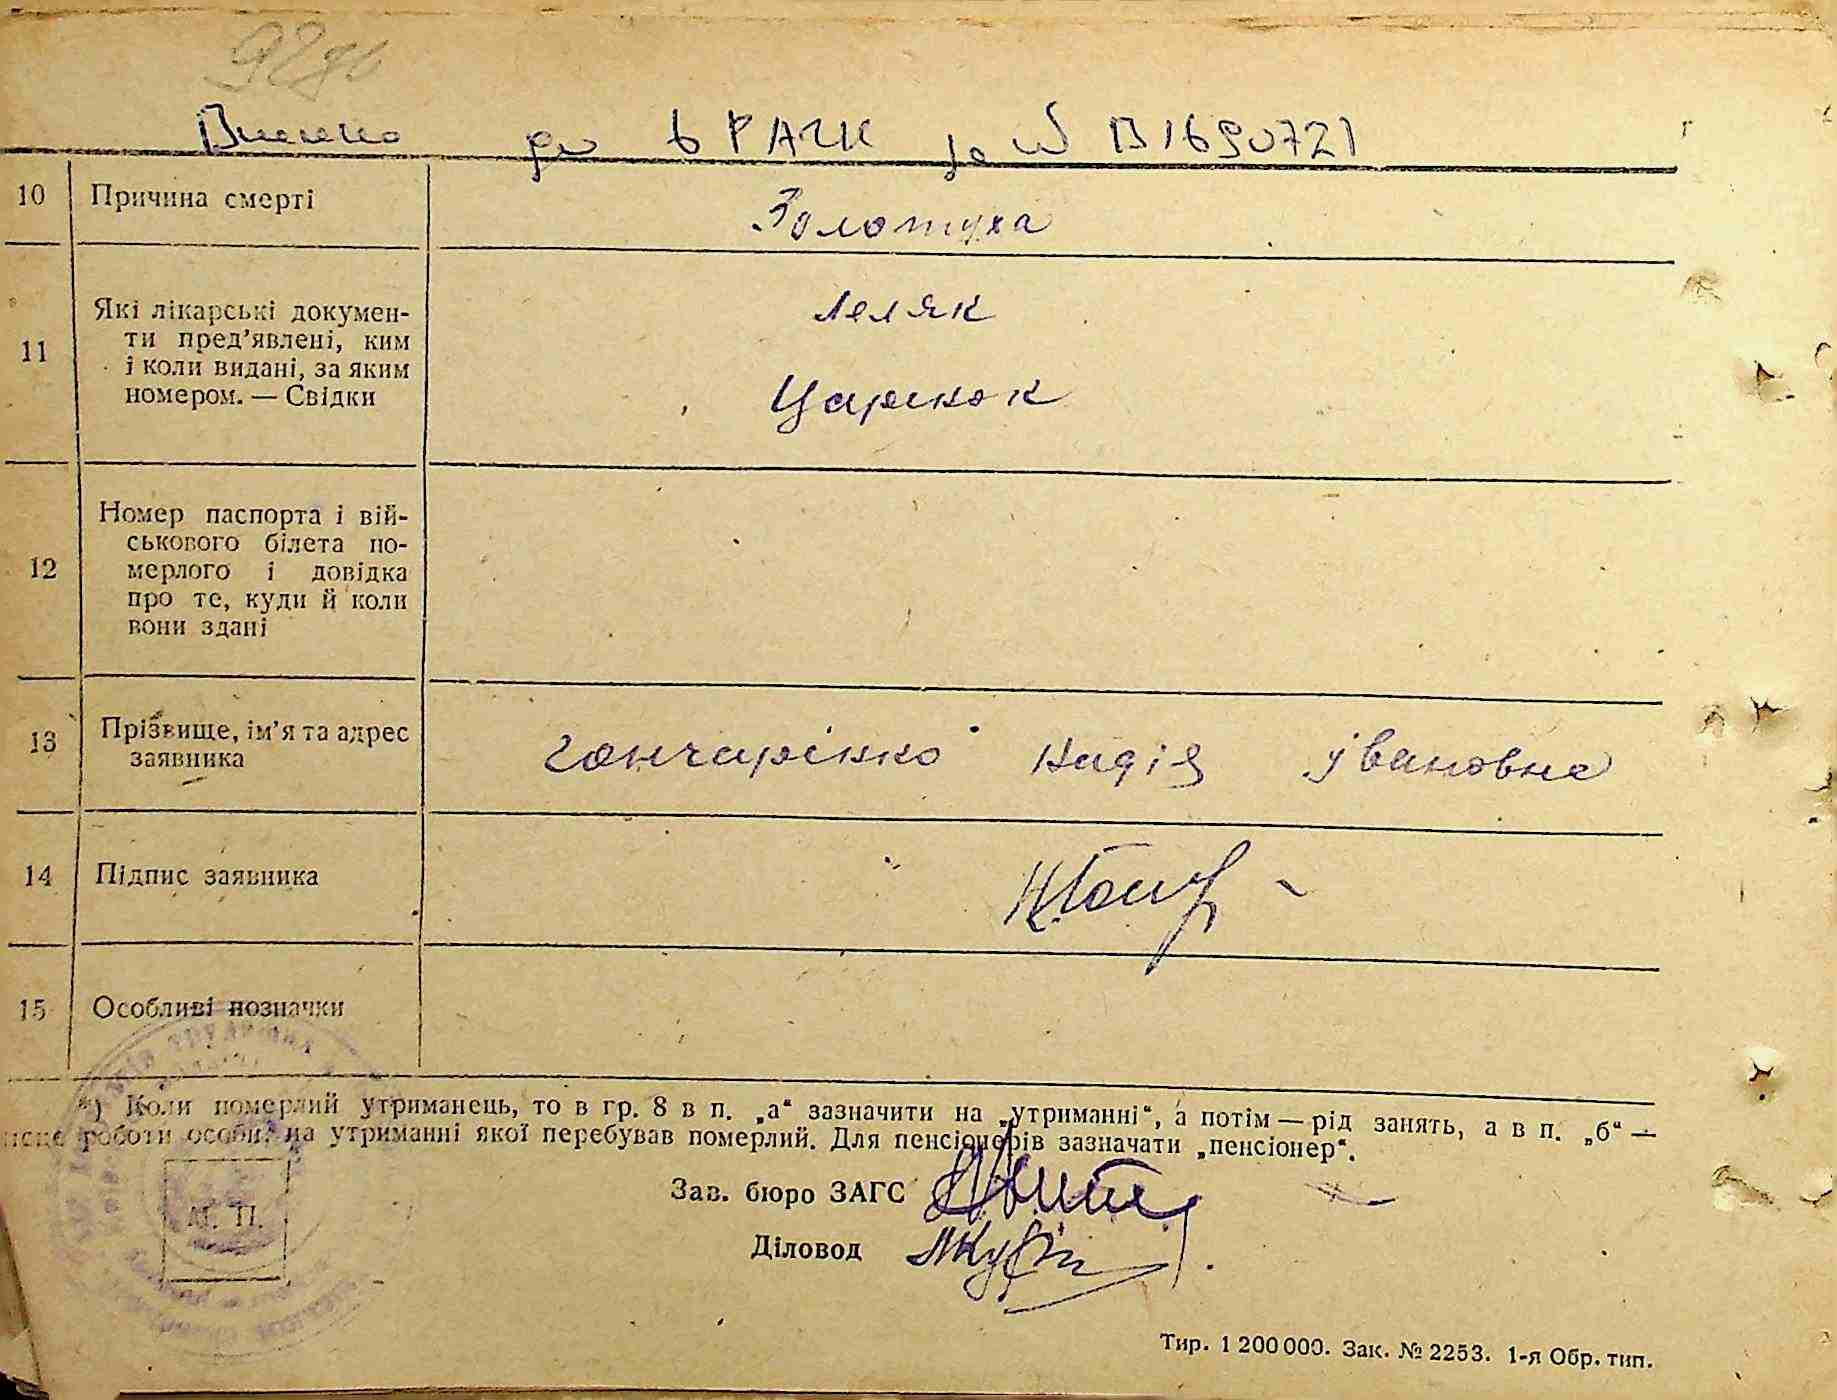 в РАЧК В1690721
10 Причина смерті Золотуха
11 Які лікарські докумен-
ти пред’явлені, ким
і коли видані, за яким
номером. — Свідки
Леляк
Царенок
12 Номер паспорта і вій-
ськового білета по-
мерлого і довідка
про те, куди й коли
вони здані
13 Прізвище, ім’я та адрес
заявника
Гончарінко Надія Iвановна
14 Підпис заявника
15 Особливі позначки
*) Коли померлий утриманець, то в гр. 8 в п. „а“ зазначити на „утриманні“, а потім — рід занять, а в п. „б“ —
роботи особи, на утриманні якої перебував померлий. Для пенсіонерів зазначати „пенсіонер“.
М. П.
Зав. бюро ЗАГС
Діловод
Тир. 1 200 000. Зак. № 2253. 1-я Обр. тип.